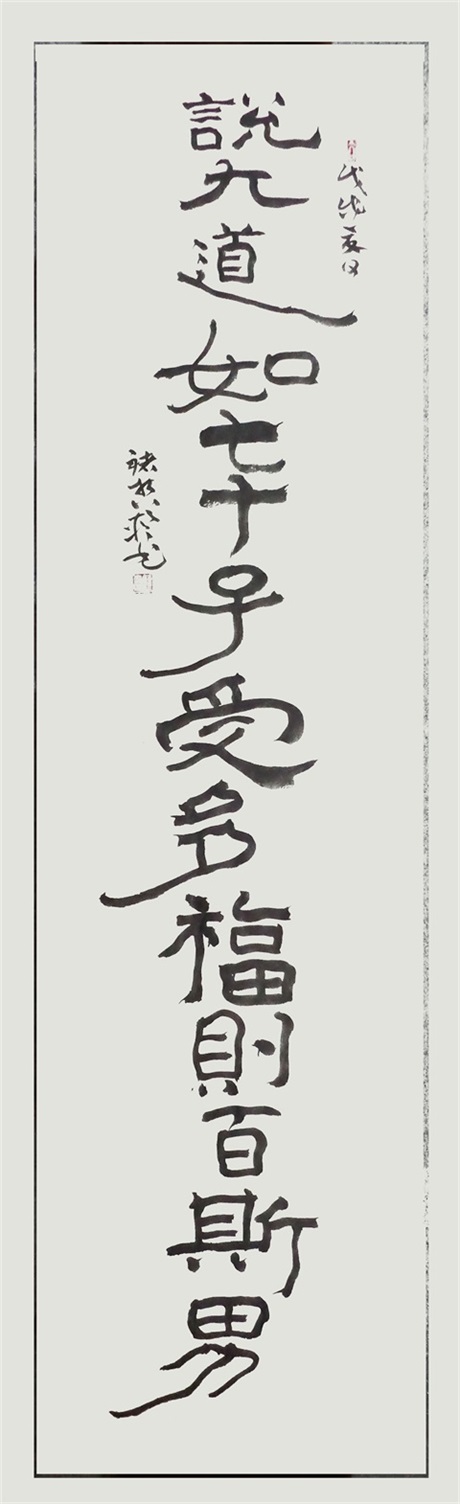 戊戌夏日
說大道如七十子受多福則百斯男
褚